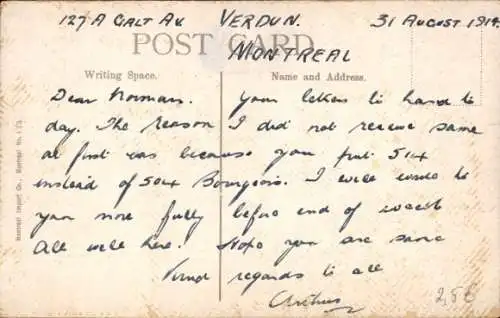 127A GALT AV. VERDUN. 31 AUGUST 1914.
POST CARD.
MONTREAL
Writing Space. Name and Address.
Dear Norman. Your letters to hand to
day. The reason I did not receive same
at first was because you put 514
instead of 504 Bourgeois. I will write to
you more fully before end of week
All well here. Hope you are same
Kind regards to all
Arthur
2,50
Montreal Import Co., Montreal No. 173